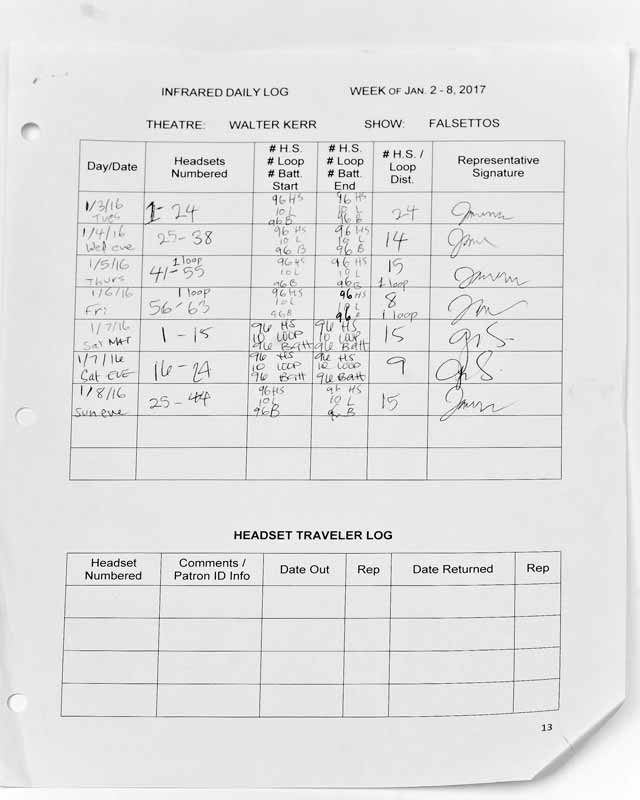 INFRARED DAILY LOG WEEK OF JAN. 2 - 8, 2017
THEATRE: WALTER KERR SHOW: FALSETTOS
Day/Date Headsets Numbered # H.S. # Loop # Batt. Start # H.S. # Loop # Batt. End # H.S. / # Loop Dist. Representative Signature
1/3/16 Tues 1-24 96 HS 10 L 96 B 96 HS 10 L 96 B 24
1/4/16 Wed eve 25-38 96 HS 10 L 96 B 96 HS 10 L 96 B 14
1/5/16 Thurs 1 loop 41-55 96 HS 10 L 96 B 96 HS 10 L 96 B 15 1 loop
1/6/16 Fri 1 loop 56-63 96 HS 10 L 96 B 96 HS 10 L 96 8 1 loop
1/7/16 Sat MAT 1-15 96 HS 10 LOOP 96 Batt 96 HS 10 LOOP 96 Batt 15
1/7/16 Sat EVE 16-24 96 HS 10 LOOP 96 Batt 96 HS 10 LOOP 96 Batt 9
1/8/16 Sun eve 25-44 96 HS 10 L 96 B 96 HS 10 L B 15
HEADSET TRAVELER LOG
Headset Numbered Comments / Patron ID Info Date Out Rep Date Returned Rep
13